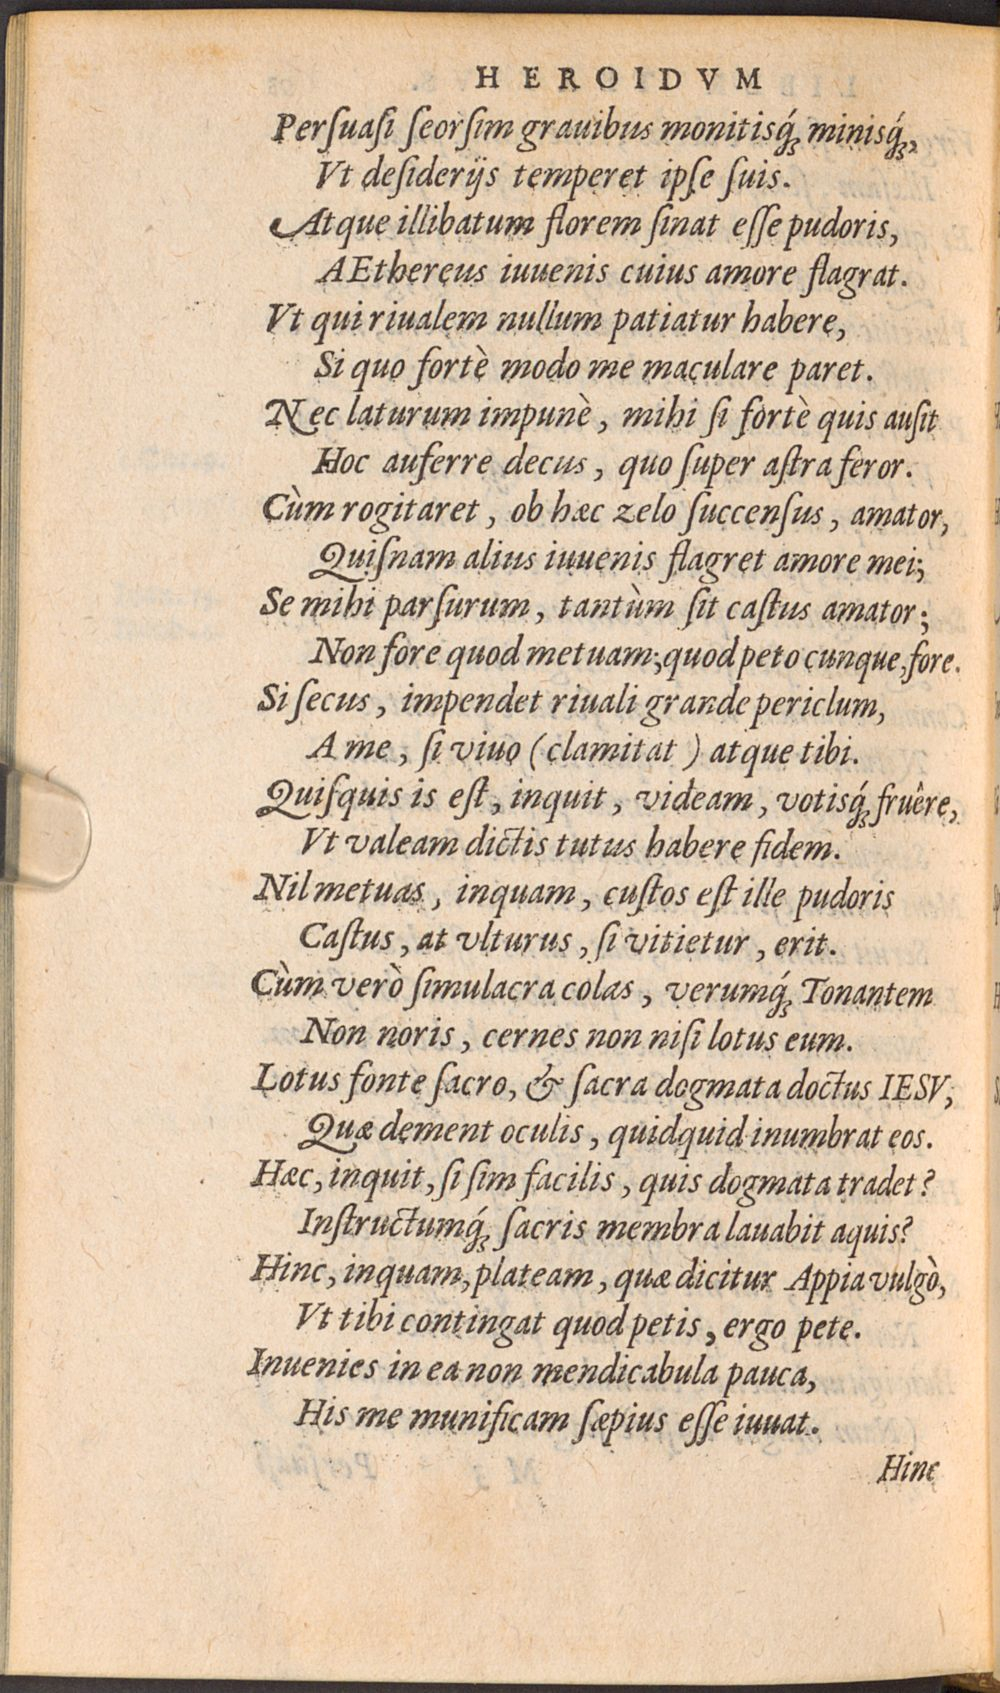 HEROIDVM
Perſuaſi ſeorſim grauibus monitisq́ꝫ minisq́ꝫ,
Vt deſiderijs temperet ipſe ſuis.
Atque illibatum florem ſinat eſſe pudoris,
AEthereus iuuenis cuius amore flagrat.
Vt qui riualem nullum patiatur habere,
Si quo fortè modo me maculare paret.
Nec laturum impunè, mihi ſi fortè quis auſit
Hoc auferre decus, quo ſuper aſtra feror.
Cùm rogitaret, ob hæc zelo ſuccenſus, amator,
Quiſnam alius iuuenis flagret amore mei;
Se mihi parſurum, tantùm ſit caſtus amator;
Non fore quod metuam; quod peto cunque, fore.
Si ſecus, impendet riuali grande periclum,
A me, ſi viuo (clamitat) atque tibi.
Quiſquis is eſt, inquit, videam, votisq́ꝫ fruêre,
Vt valeam dictis tutus habere fidem.
Nil metuas, inquam, cuſtos eſt ille pudoris
Caſtus, at vlturus, ſi vitietur, erit.
Cùm verò ſimulacra colas, verumq́ꝫ Tonantem
Non noris, cernes non niſi lotus eum.
Lotus fonte ſacro, & ſacra dogmata doctus IESV;
Quæ dement oculis, quidquid inumbrat eos.
Hæc, inquit, ſi ſim facilis, quis dogmata tradet?
Inſtructumq́ꝫ ſacris membra lauabit aquis?
Hinc, inquam, plateam, quæ dicitur Appia vulgò,
Vt tibi contingat quod petis, ergo pete.
Inuenies in ea non mendicabula pauca,
His me munificam ſæpius eſſe iuuat.
Hinc